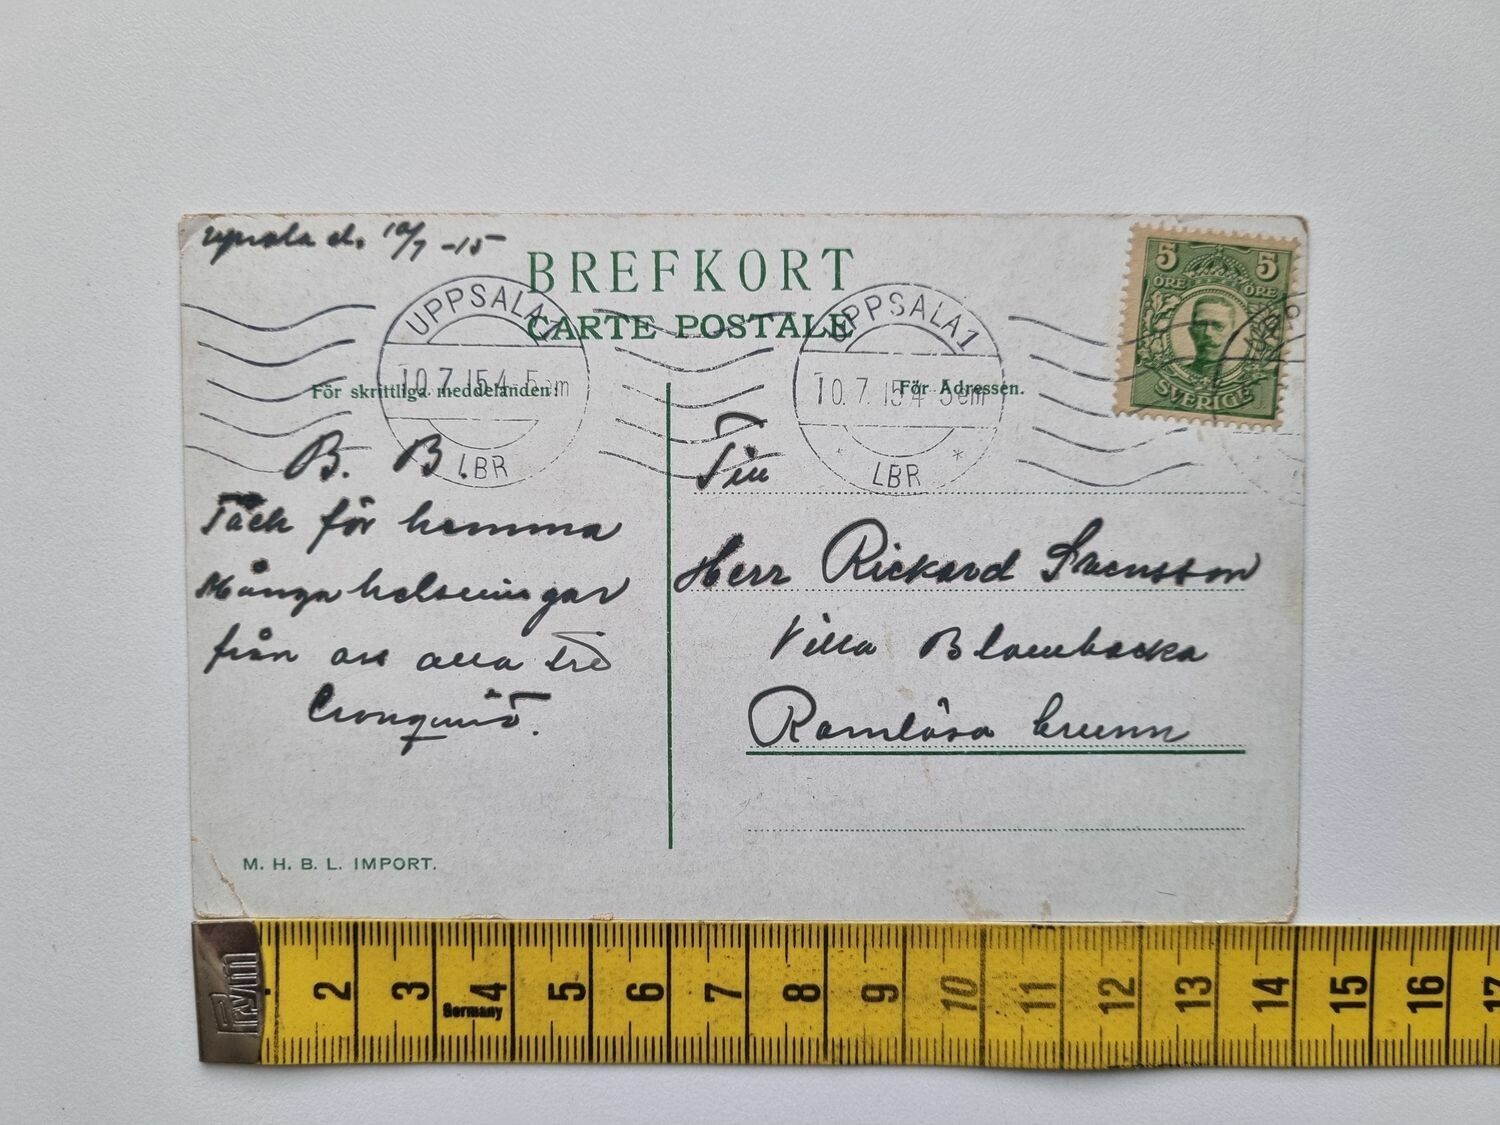 Upsala d. 10/7 -15
BREFKORT
CARTE POSTALE
UPPSALA 1
10.7.15 4-5 em
LBR
UPPSALA 1
10.7.15 4-5 em
* LBR *
För skriftliga meddelanden:
För Adressen.
5 5
ÖRE ÖRE
SVERIGE
B. B.
Täck för hemma
Många helsningar
från oss alla tre
Cronquist.
Till
Herr Rickard Svensson
Villa Blombacka
Ramlösa brunn
M. H. B. L. IMPORT.
Prym
Germany
2 3 4 5 6 7 8 9 10 11 12 13 14 15 16 17